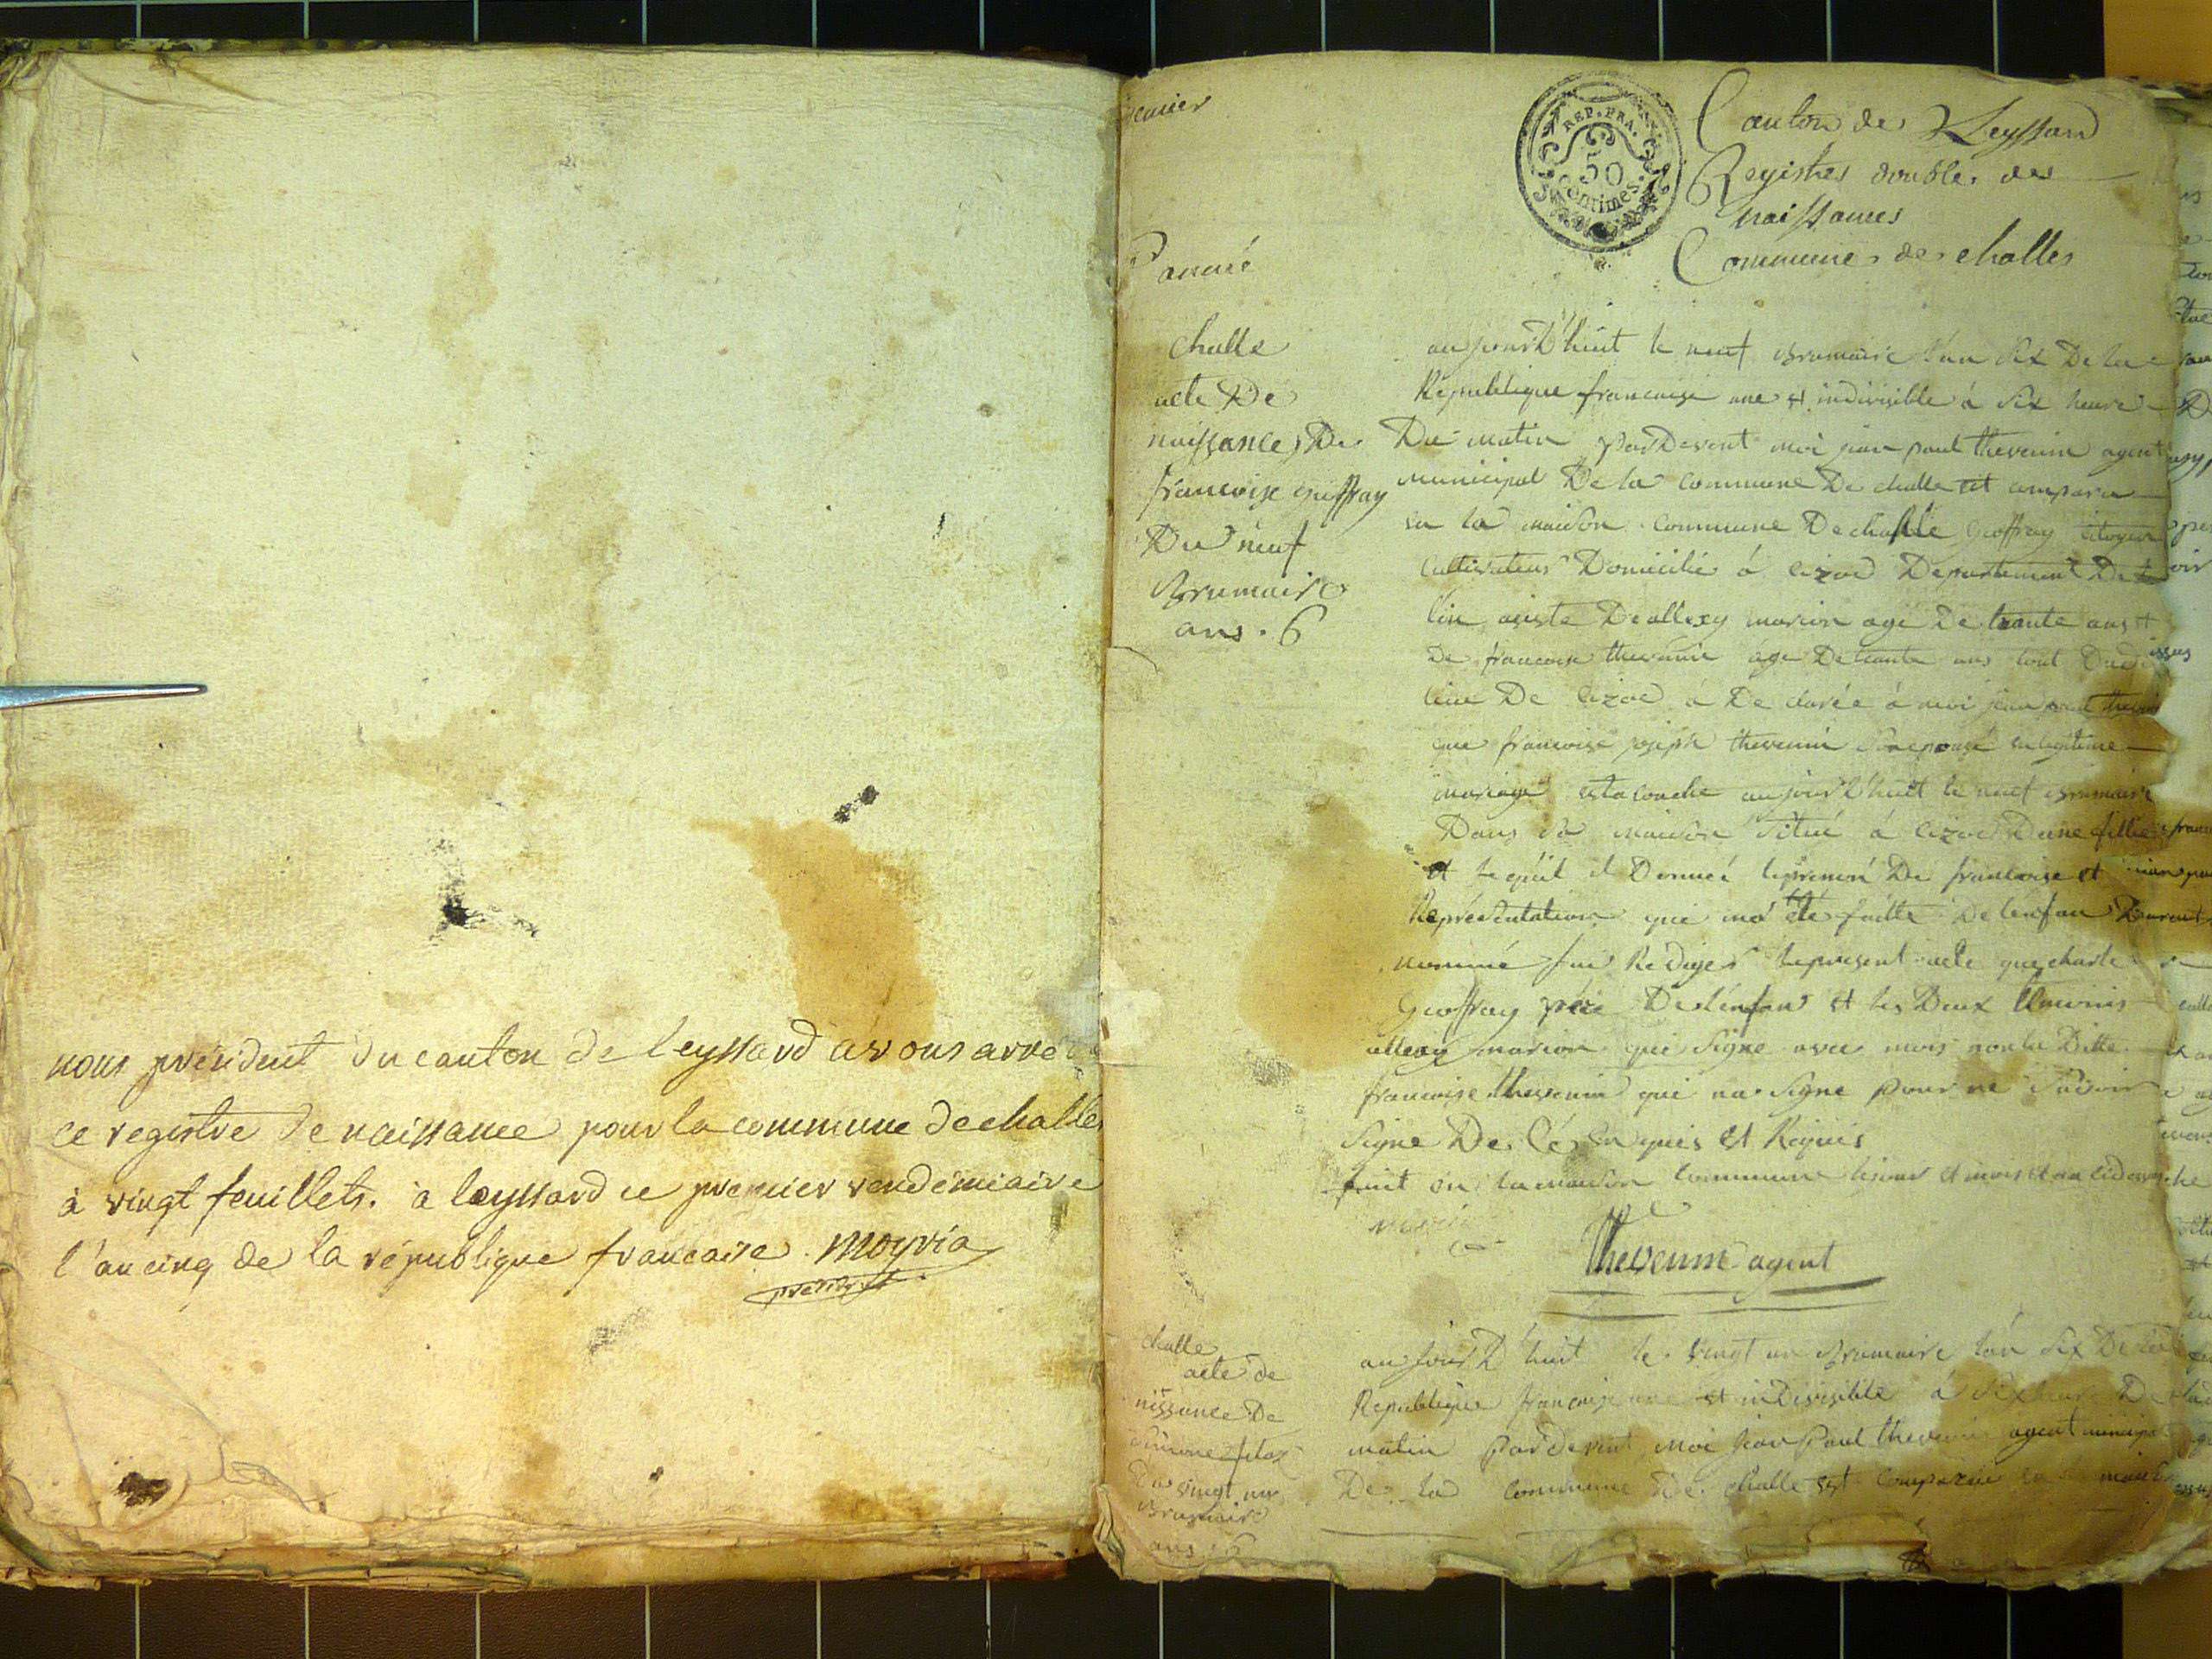 nous président du canton de leyssard avons arre
ce registre de naissance pour la commune de challe
à vingt feuillets. à leyssard ce premier vendémiaire
l'an cinq de la république francaise. moyria
président
premier
REP. FRA.
50
Centimes.
Canton de Leyssard
Registres doubles des
naissances
Commune de challes
challe
acte De
naissance De
francoise Geoffray
Du neuf
Brumaire
ans. 6
aujourD'huit le neuf Brumaire l'an six De la
Republique francaise une et indivisible à six heure
Du matin parDevent moi jean paul thevenin agent
municipal De la commune De challe est comparu
en la maison commune De challe Geoffray citoyen
cultivateur Domicilié á lizac Departement De
l'in asisté De allexy marion agé De trante ans et
De francoise thevenin age De trante ans tout Dudi
lieu De lizac á De clarée à moi jean paul thevenin
que francoise joseph thevenin son epouse en legitime
mariage est acouche aujourD'huit le neuf Brumaire
Dans sa maison situé á lizac D'une fillie
et le quil il Donneé le prenom De francoise et
Représentation qui ma été faitte De lenfan
nommé fai Rediger le present acte que charle
Geoffray père De lénfan et les Deux témoins
allexy marion qui signe avec mois non la Ditte
francoise thevenin qui na signe pour ne savoir
signe De Cé enquis et Requis
fait en la maison commune le jour et mois et an cidessus
Thevenin agent
challe
acte de
nissance De
Du vingt un
Brumaire
ans 6
aujourD'huit le vingt un Brumaire l'an six De la
Republique francaise une et indivisible á six heure De
matin parDevent moi jean paul thevenin agent municipal
De la commune De challe est comparue